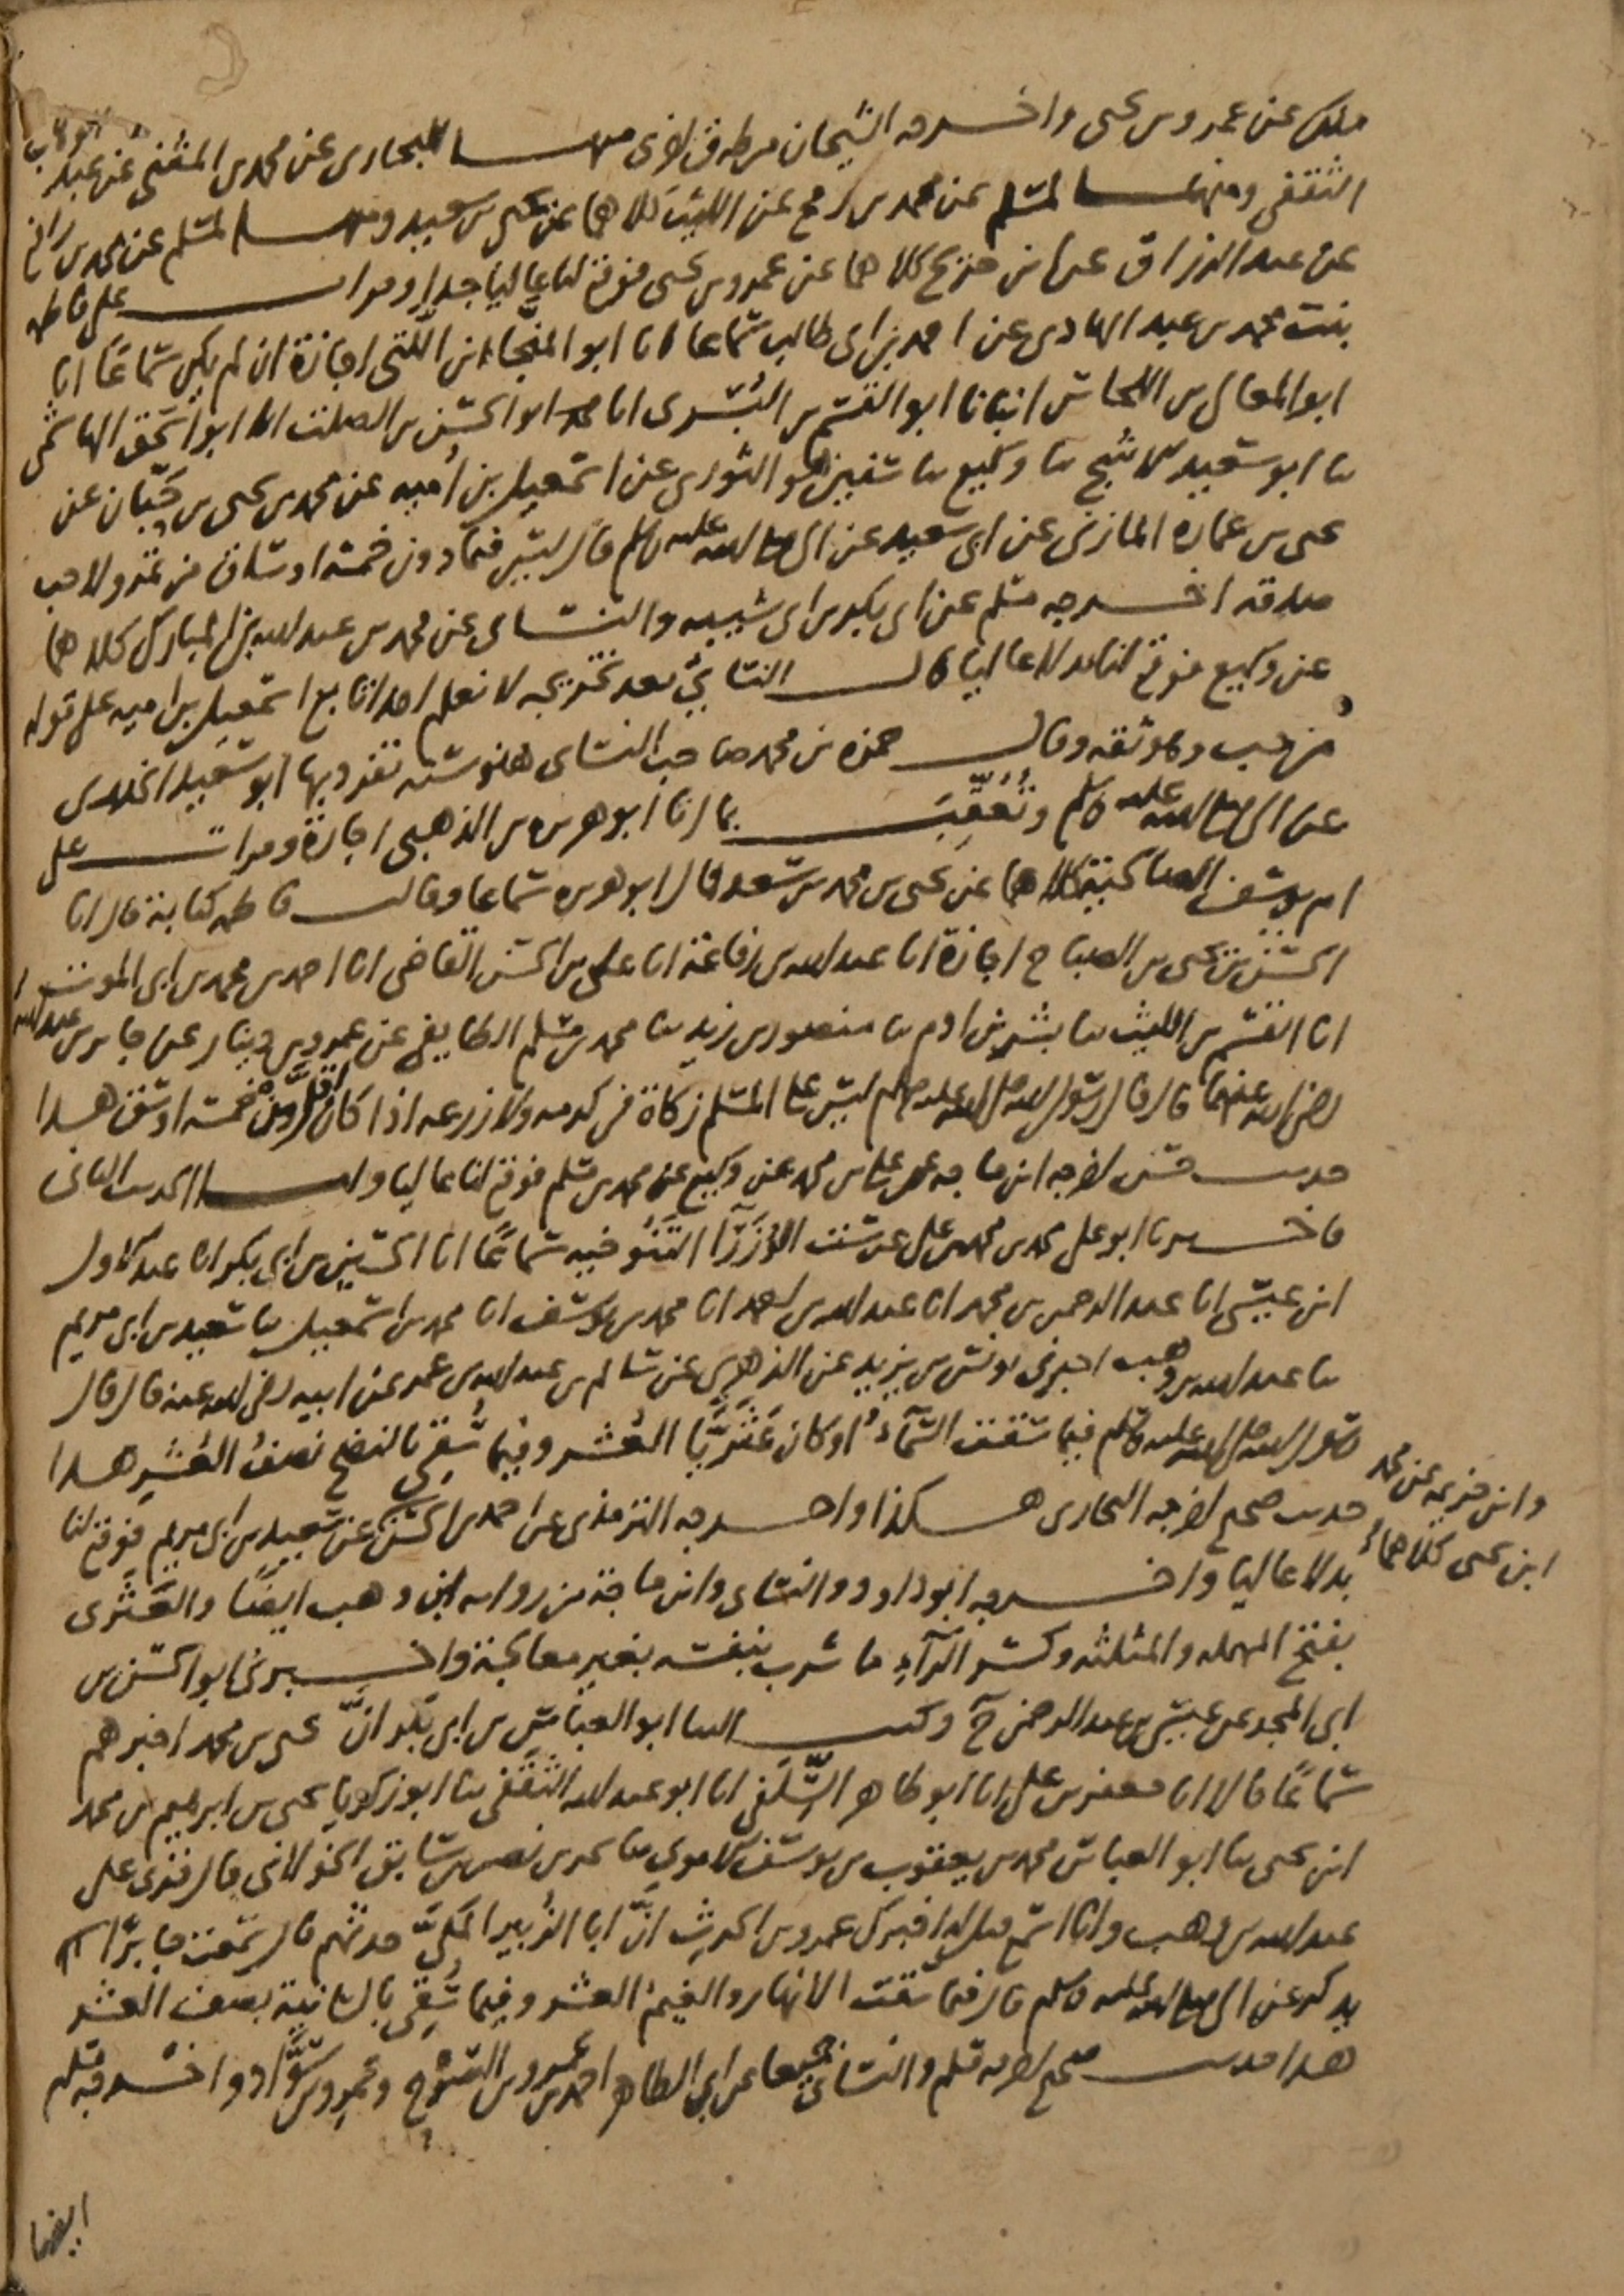 ملك عن عمرو بن يحيى واخرجه الشيخان من طرق اخرى منها للبخارى عن محمد بن المثنى عن عبد الوهاب
الثقفى ومنها لمسلم عن محمد بن رمح عن الليث كلاهما عن يحيى بن سعيد ومنها لمسلم عن محمد بن رافع
عن عبد الرزاق عن ابن جريج كلاهما عن عمرو بن يحيى فوقع لنا عاليا جدا وقرات على فاطمه
بنت محمد بن عبد الهادى عن احمد بن ابى طالب سماعا انا ابو المنجا ابن اللتى اجازة ان لم يكن سماعا انا
ابو المعالى بن اللحاس انبانا ابو القسم بن البسرى انا ابو الحسن بن الصلت انا ابو اسحق الهاشمى
نا ابو سعيد الاشج نا وكيع نا سفين هو الثورى عن اسمعيل بن اميه عن محمد بن يحيى بن حبان عن
يحيى بن عماره المازنى عن ابى سعيد عن النبى صلى الله عليه وسلم قال ليس فيما دون خمسة اوساق من تمر ولا حب
صدقه اخرجه مسلم عن ابى بكر بن ابى شيبه والنساى عن محمد بن عبد الله بن المبارك كلاهما
عن وكيع فوقع لنا بدلا عاليا قال النسائي بعد تخريجه لا نعلم احدا تابع اسمعيل بن اميه على قوله
من حب وهو ثقه وقال حمزه بن محمد صاحب النساى هذه سنه تفرد بها ابو سعيد الخدرى
عن النبى صلى الله عليه وسلم وتُعُقِّبَ بما انا ابو هريره بن الذهبى اجازة وقرات على
ام يوسف الصالحية كلاهما عن يحيى بن محمد بن سعد قال ابو هريره سماعا وقالت فاطمه كتابة قال انا
الحسن بن يحيى بن الصباح اجازة انا عبد الله بن رفاعة انا على بن الحسن القاضى انا احمد بن محمد بن ابى الموت
انا القسم بن الليث نا بشر بن ادم نا منصور بن زيد نا محمد بن مسلم الطايفى عن عمرو بن دينار عن جابر بن عبد الله
رضى الله عنهما قال قال رسول الله صلى الله عليه وسلم ليس على المسلم زكاة فى كرمه ولا زرعه اذا كان اقل من خمسة اوسق هذا
حديث حسن اخرجه ابن ماجه عن على بن محمد عن وكيع عن محمد بن مسلم فوقع لنا عاليا واما الحديث الثانى
فاخبرنا ابو على محمد بن محمد بن على عن ست الوُزَرَآ التنوخيه سماعا انا الحسين بن ابى بكر انا عبد الاول
ابن عيسى انا عبد الرحمن بن محمد انا عبد الله بن احمد انا محمد بن يوسف انا محمد بن اسمعيل نا سعيد بن ابى مريم
نا عبد الله بن وهب اخبرنى يونس بن يزيد عن الزهرى عن سالم بن عبد الله بن عمر عن ابيه رضى الله عنه قال قال
رسول الله صلى الله عليه وسلم فيما سقت السَّمآءُ او كان عَثَرِيًّا العُشر وفيما سُقِىَ بالنضح نصفُ العُشرِ هذا
حديث صحيح اخرجه البخارى هكذا واخرجه الترمذى عن احمد بن الحسن عن سعيد بن ابى مريم فوقع لنا
بدلا عاليا واخرجه ابو داود والنساى وابن ماجة من رواية ابن وهب ايضًا والعَثَرى
وابن خزيمه عن محمد
ابن يحيى كلاهما
بفتح المهمله والمثلثه وكسر الرآءِ ما شرب بنفسه بغير معالجة واخبرنى ابو الحسن بن
ابى المجد عن عيسى بن عبد الرحمن ح وكتب الينا ابو العباس بن ابى بكر انَّ يحيى بن محمد اخبرهم
سماعًا قالا انا جعفر بن على انا ابو طاهر السِّلَفى انا ابو عبد الله الثقفى نا ابو زكريا يحيى بن ابرهيم بن محمد
ابن يحيى نا ابو العباس محمد بن يعقوب بن يوسف الاموى نا بحر بن نصر بن سابق الخولانى قال قرى على
عبد الله بن وهب وانا اسمع قيل له اخبرك عمرو بن الحرث انَّ ابا الزُبير المكىَّ حدثهم قال سمعت جابرًا
يذكر عن النبى صلى الله عليه وسلم قال فيما سقت الانهار والغيمُ العشر وفيما سُقِىَ بالسانيةِ نصف العشر
هذا حديث صحيح اخرجه مسلم والنساى جميعا عن ابى الطاهر احمد بن عمرو بن السرح وعمرو بن سوَّاد واخرجه مسلم
ايضا